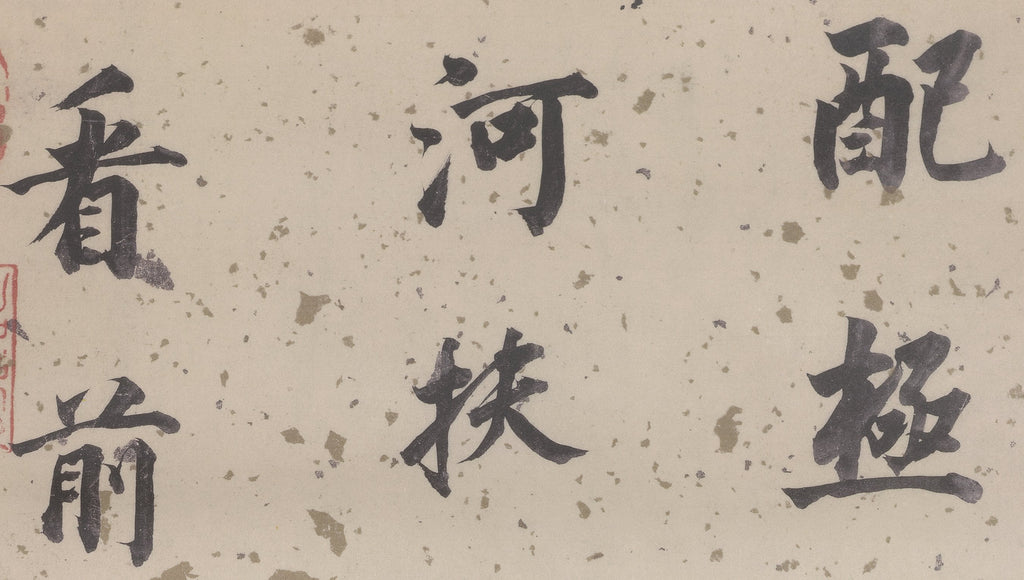 配極
河扶
看前